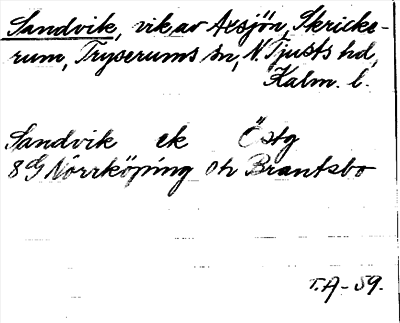 Sandvik, vik av Axsjön, Skricke-
rum, Tryserums sn, N. Tjusts hd,
Kalm. l.
Sandvik ek Östg
8G Norrköping 0h Brantsbo
T.A-59.